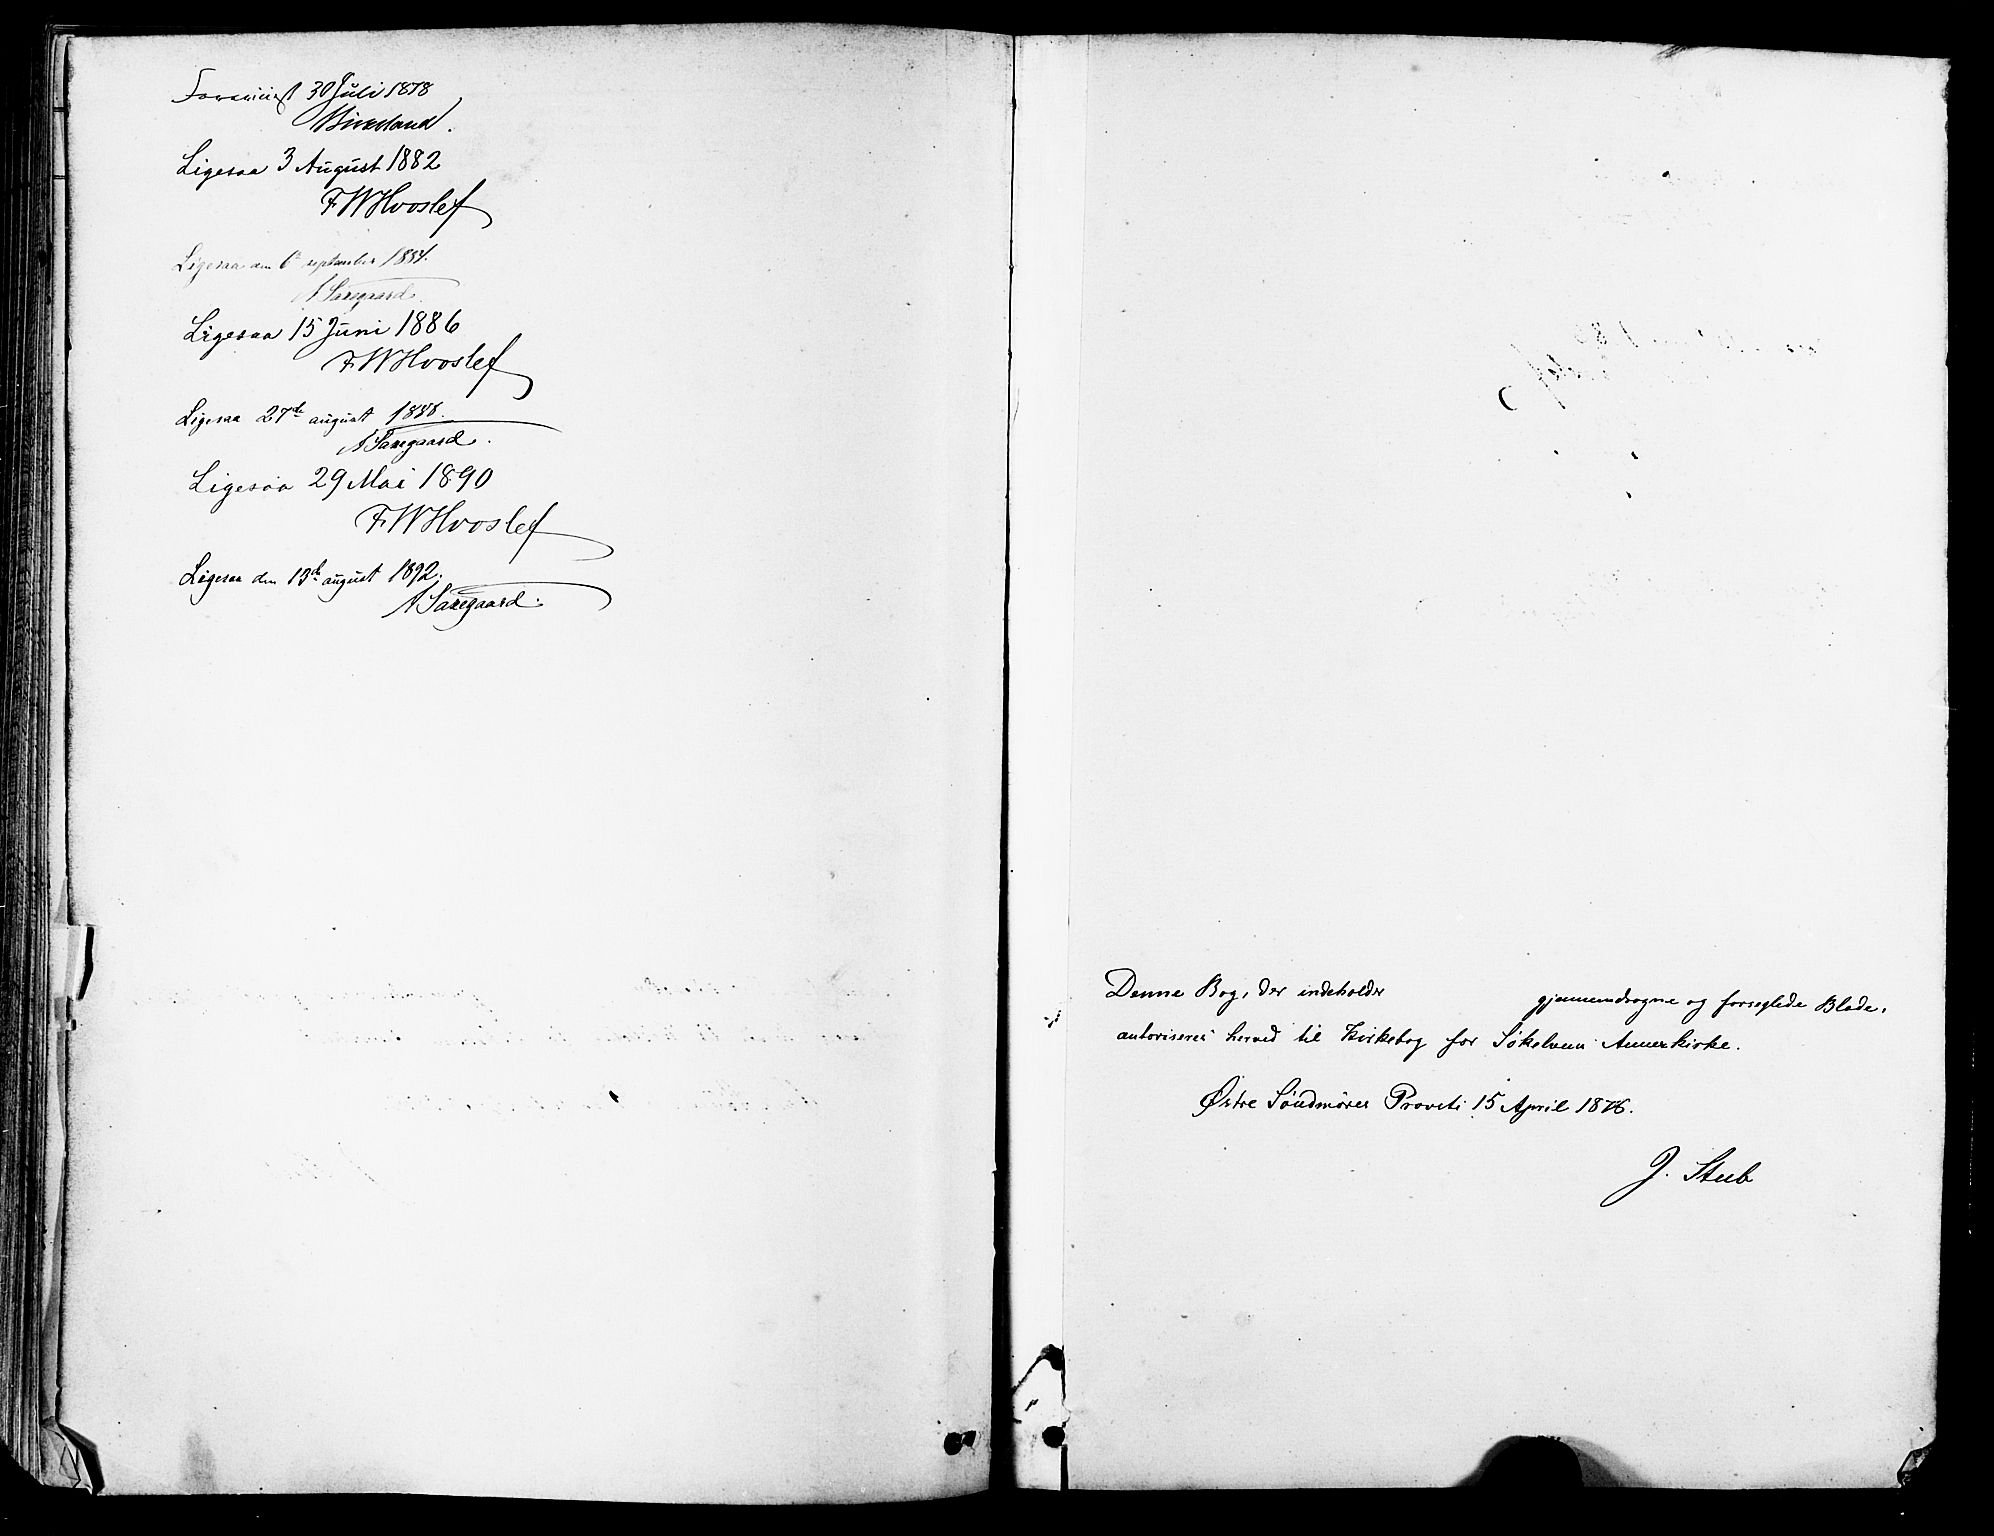 Forevist 30 Juli 1878
Birkeland.
Ligesaa 3 August 1882
F W Hvoslef
Ligesaa den 6te september 1884.
N Saxegaard.
Ligesaa 15 Juni 1886
F W Hvoslef
Ligesaa 27de august 1888.
N Saxegaard.
Ligesaa 29 Mai 1890
F W Hvoslef
Ligesaa den 13de august 1892.
N Saxegaard.
Denne Bog, der indeholder gjennemdragne og forseglede Blade,
autoriseres herved til Kirkebog for Søkelvens Annexkirke.
Østre Søndmøres Provsti 15 April 1876.
J. Stub